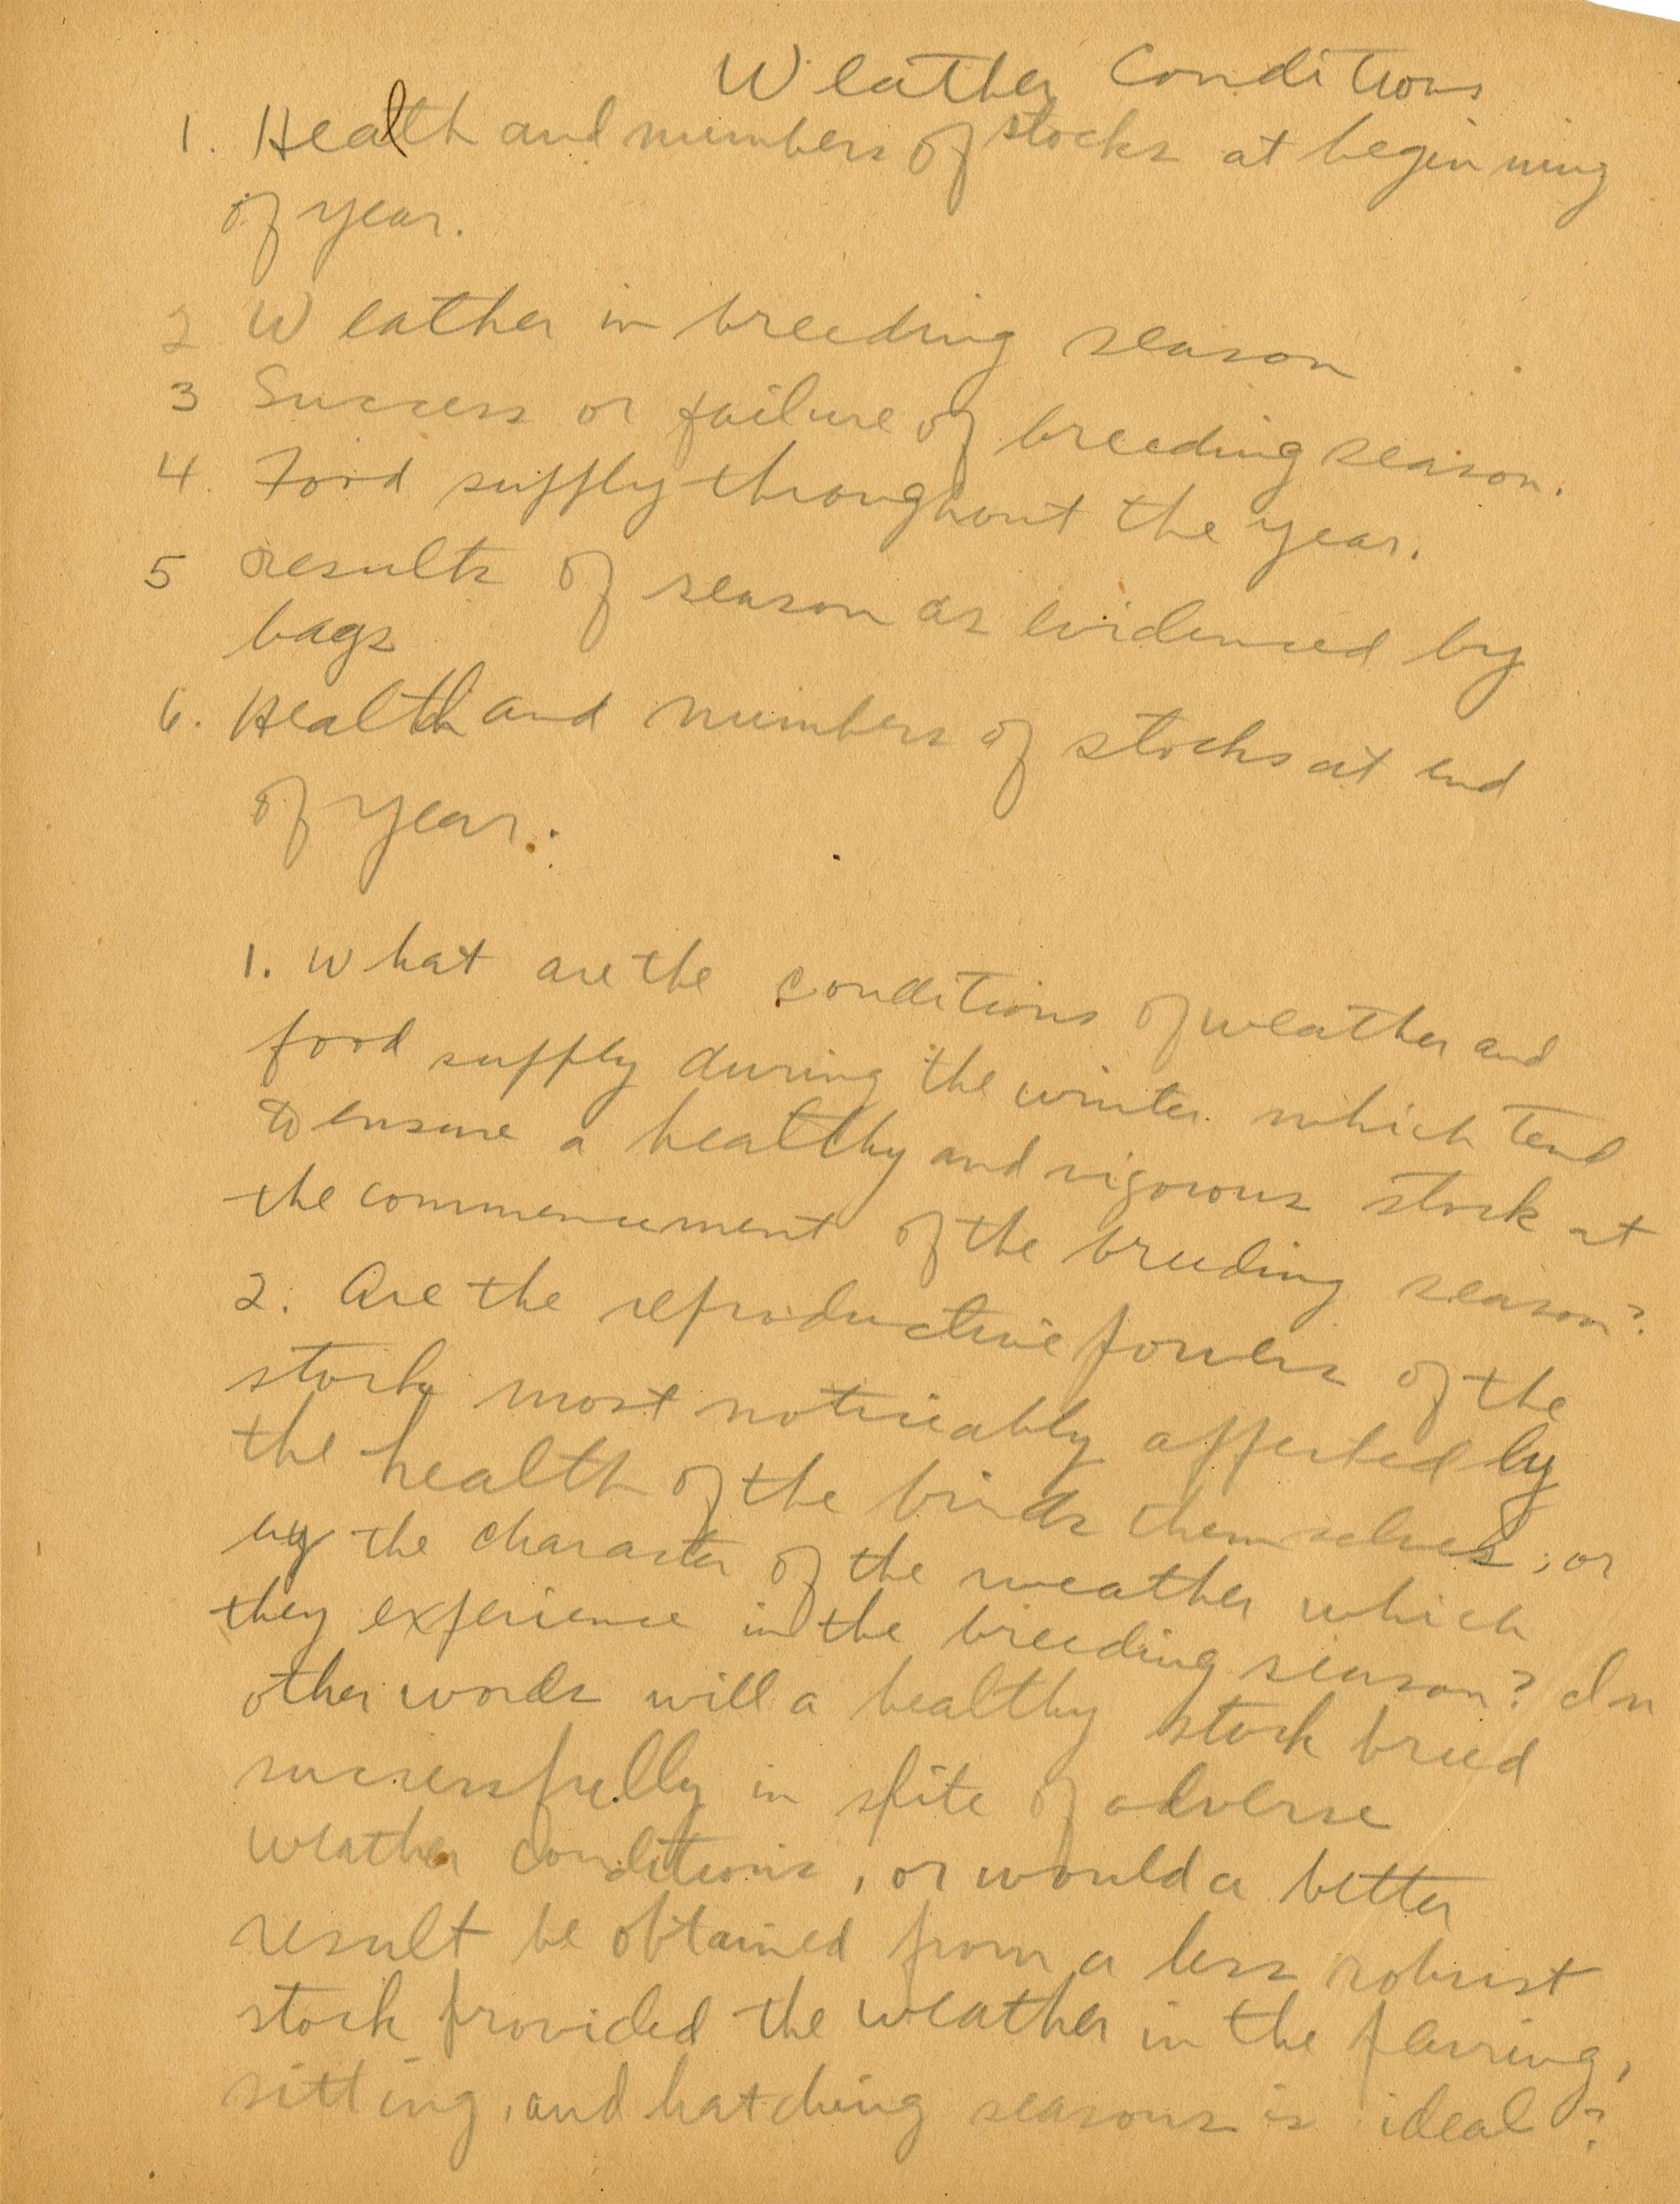 Weather Conditions
1. Health and numbers of stocks at beginning
of year.
2 Weather in breeding season
3 Success or failure of breeding season.
4. Food supply throughout the year.
5 results of season as evidenced by
bags
6. Health and numbers of stocks at end
of year.
1. What are the conditions of weather and
food supply during the winter which tend
to ensure a healthy and vigorous stock at
the commencement of the breeding season?
2. Are the reproductive powers of the
stock most noticeably affected by
the health of the birds themselves; or
by the character of the weather which
they experience in the breeding season? In
other words will a healthy stock breed
successfully in spite of adverse
weather conditions, or would a better
result be obtained from a less robust
stock provided the weather in the pairing,
sitting, and hatching seasons is ideal?